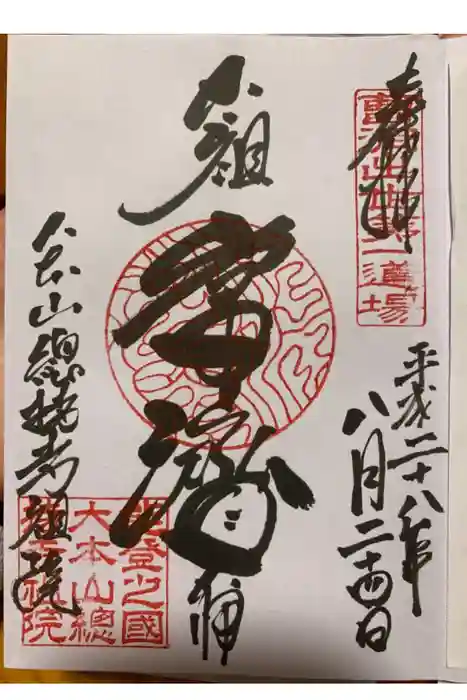 奉拝
曹洞出世第一道場
平成二十八年
八月二十四日
太祖
常濟
大師
大本山總持寺祖院
能登之國
大本山總
持寺祖院